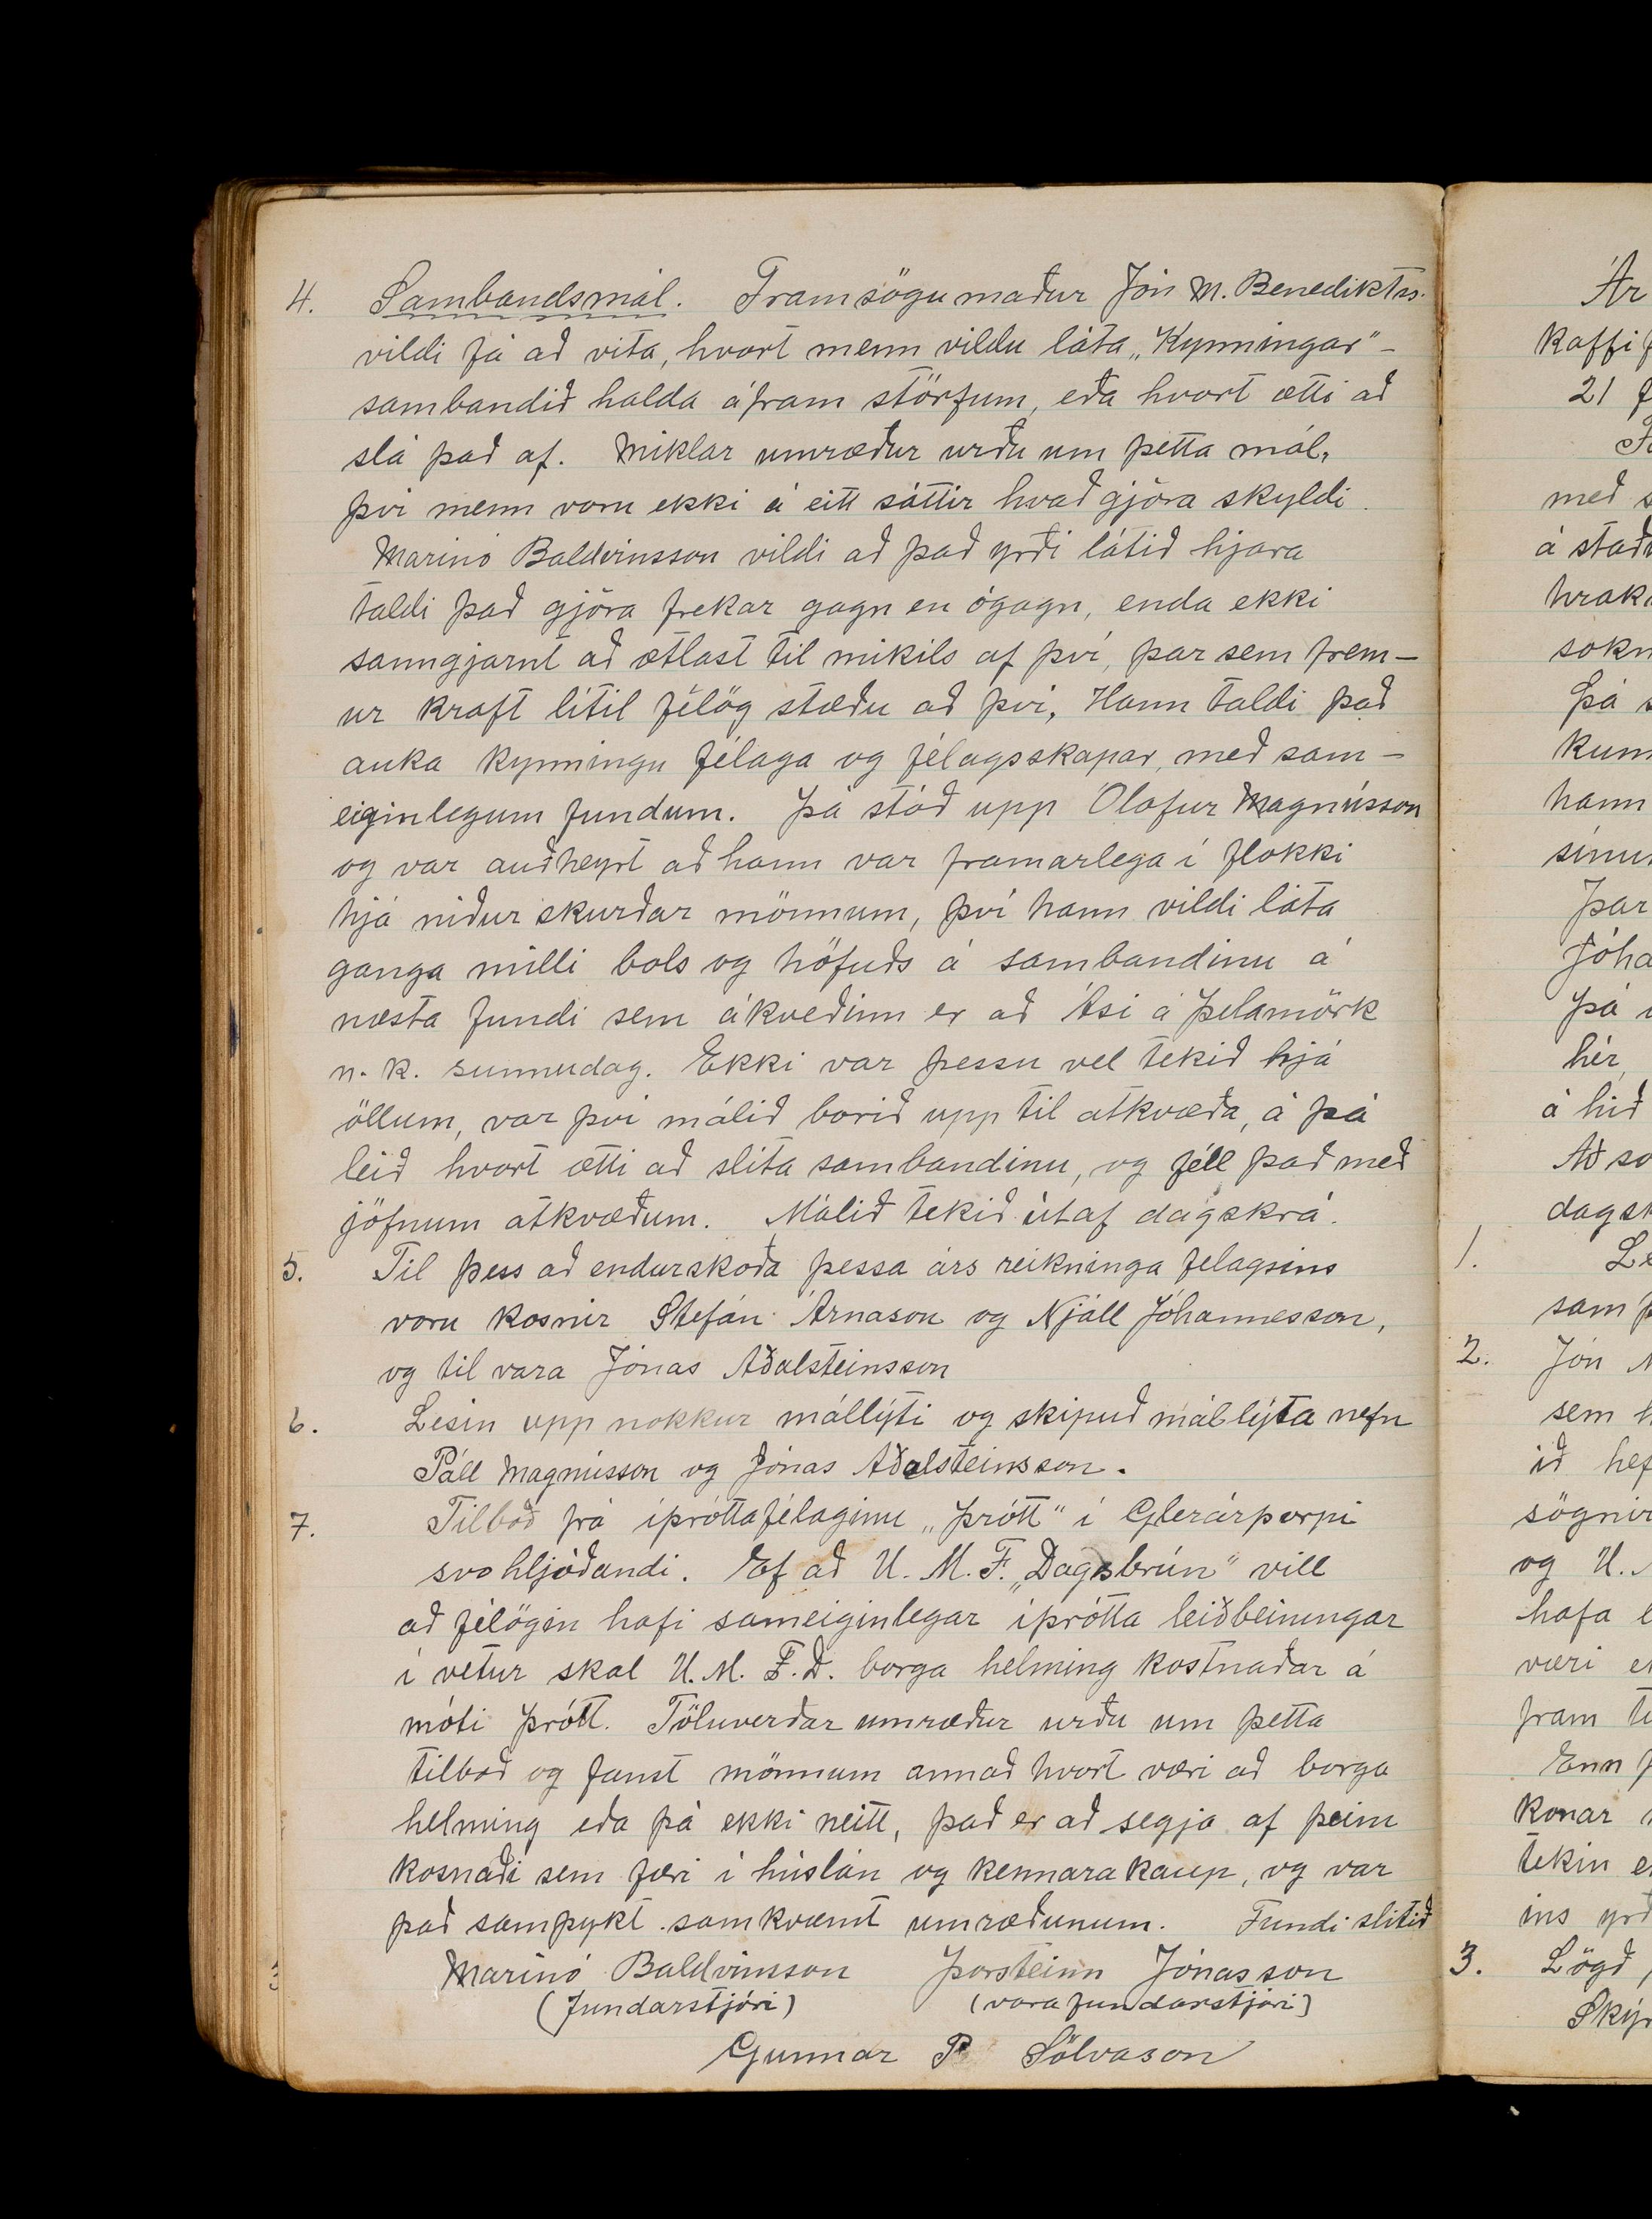 4. Sambandsmál. Framsögumaður Jón M. Benediktss.
vildi fá að vita, hvort menn vildu láta „Kynningar"-
sambandið halda áfram störfum, eða hvort ætti að
slá það af. Miklar umræður urðu um þetta mál,
því menn voru ekki á eitt sáttir hvað gjöra skyldi.
Marinó Baldvinsson vildi að það yrði látið hjara
taldi það gjöra frekar gagn en ógagn, enda ekki
sanngjarnt að ætlast til mikils af því, þar sem frem-
ur kraft lítil félög stæðu að því, Hann taldi það
auka kynningu félaga og félagsskapar, með sam-
eiginlegum fundum. Þá stóð upp Ólafur Magnússon
og var auðheyrt að hann var framarlega í flokki
hjá niðurskurðar mönnum, því hann vildi láta
ganga milli bols og höfuðs á sambandinu á
næsta fundi sem ákveðinn er að Ási á Þelamörk
n.k. sunnudag. Ekki var þessu vel tekið hjá
öllum, var því málið borið upp til atkvæða, á þá
leið hvort ætti að slíta sambandinu, og féll það með
jöfnum atkvæðum. Málið tekið útaf dagskrá.
5. Til þess að endurskoða þessa árs reikninga félagsins
voru kosnir Stefán Árnason og Njáll Jóhannesson,
og til vara Jónas Aðalsteinsson
6. Lesin upp nokkur mállýti og skipuð mállýta nefn
Páll Magnússon og Jónas Aðalsteinsson.
7. Tilboð frá íþróttafélaginu „Þrótt" í Glerárþorpi
svohljóðandi. Ef að U. M. F. „Dagsbrún" vill
að félögin hafi sameiginlegar íþrótta leiðbeiningar
í vetur skal U. M. F. D. borga helming kostnaðar á
móti Þrótt. Töluverðar umræður urðu um þetta
tilboð og fanst mönnum annað hvort væri að borga
helming eða þá ekki neitt, það er að segja af þeim
kosnaði sem færi í húslán og kennarakaup, og var
það samþykt samkvæmt umræðunum. Fundi slitið
Marinó Baldvinsson Þorsteinn Jónasson
(fundarstjóri) (varafundarstjóri)
Gunnar P Sölvason
Ár
kaffi
21
með
á
Þá
hann
Þar
Þá
hér,
á hið
Að
1.
2. Jón
sem
ið
og U.
hafa
væri
fram
Enn
konar
tekin
ins
3. Lögð